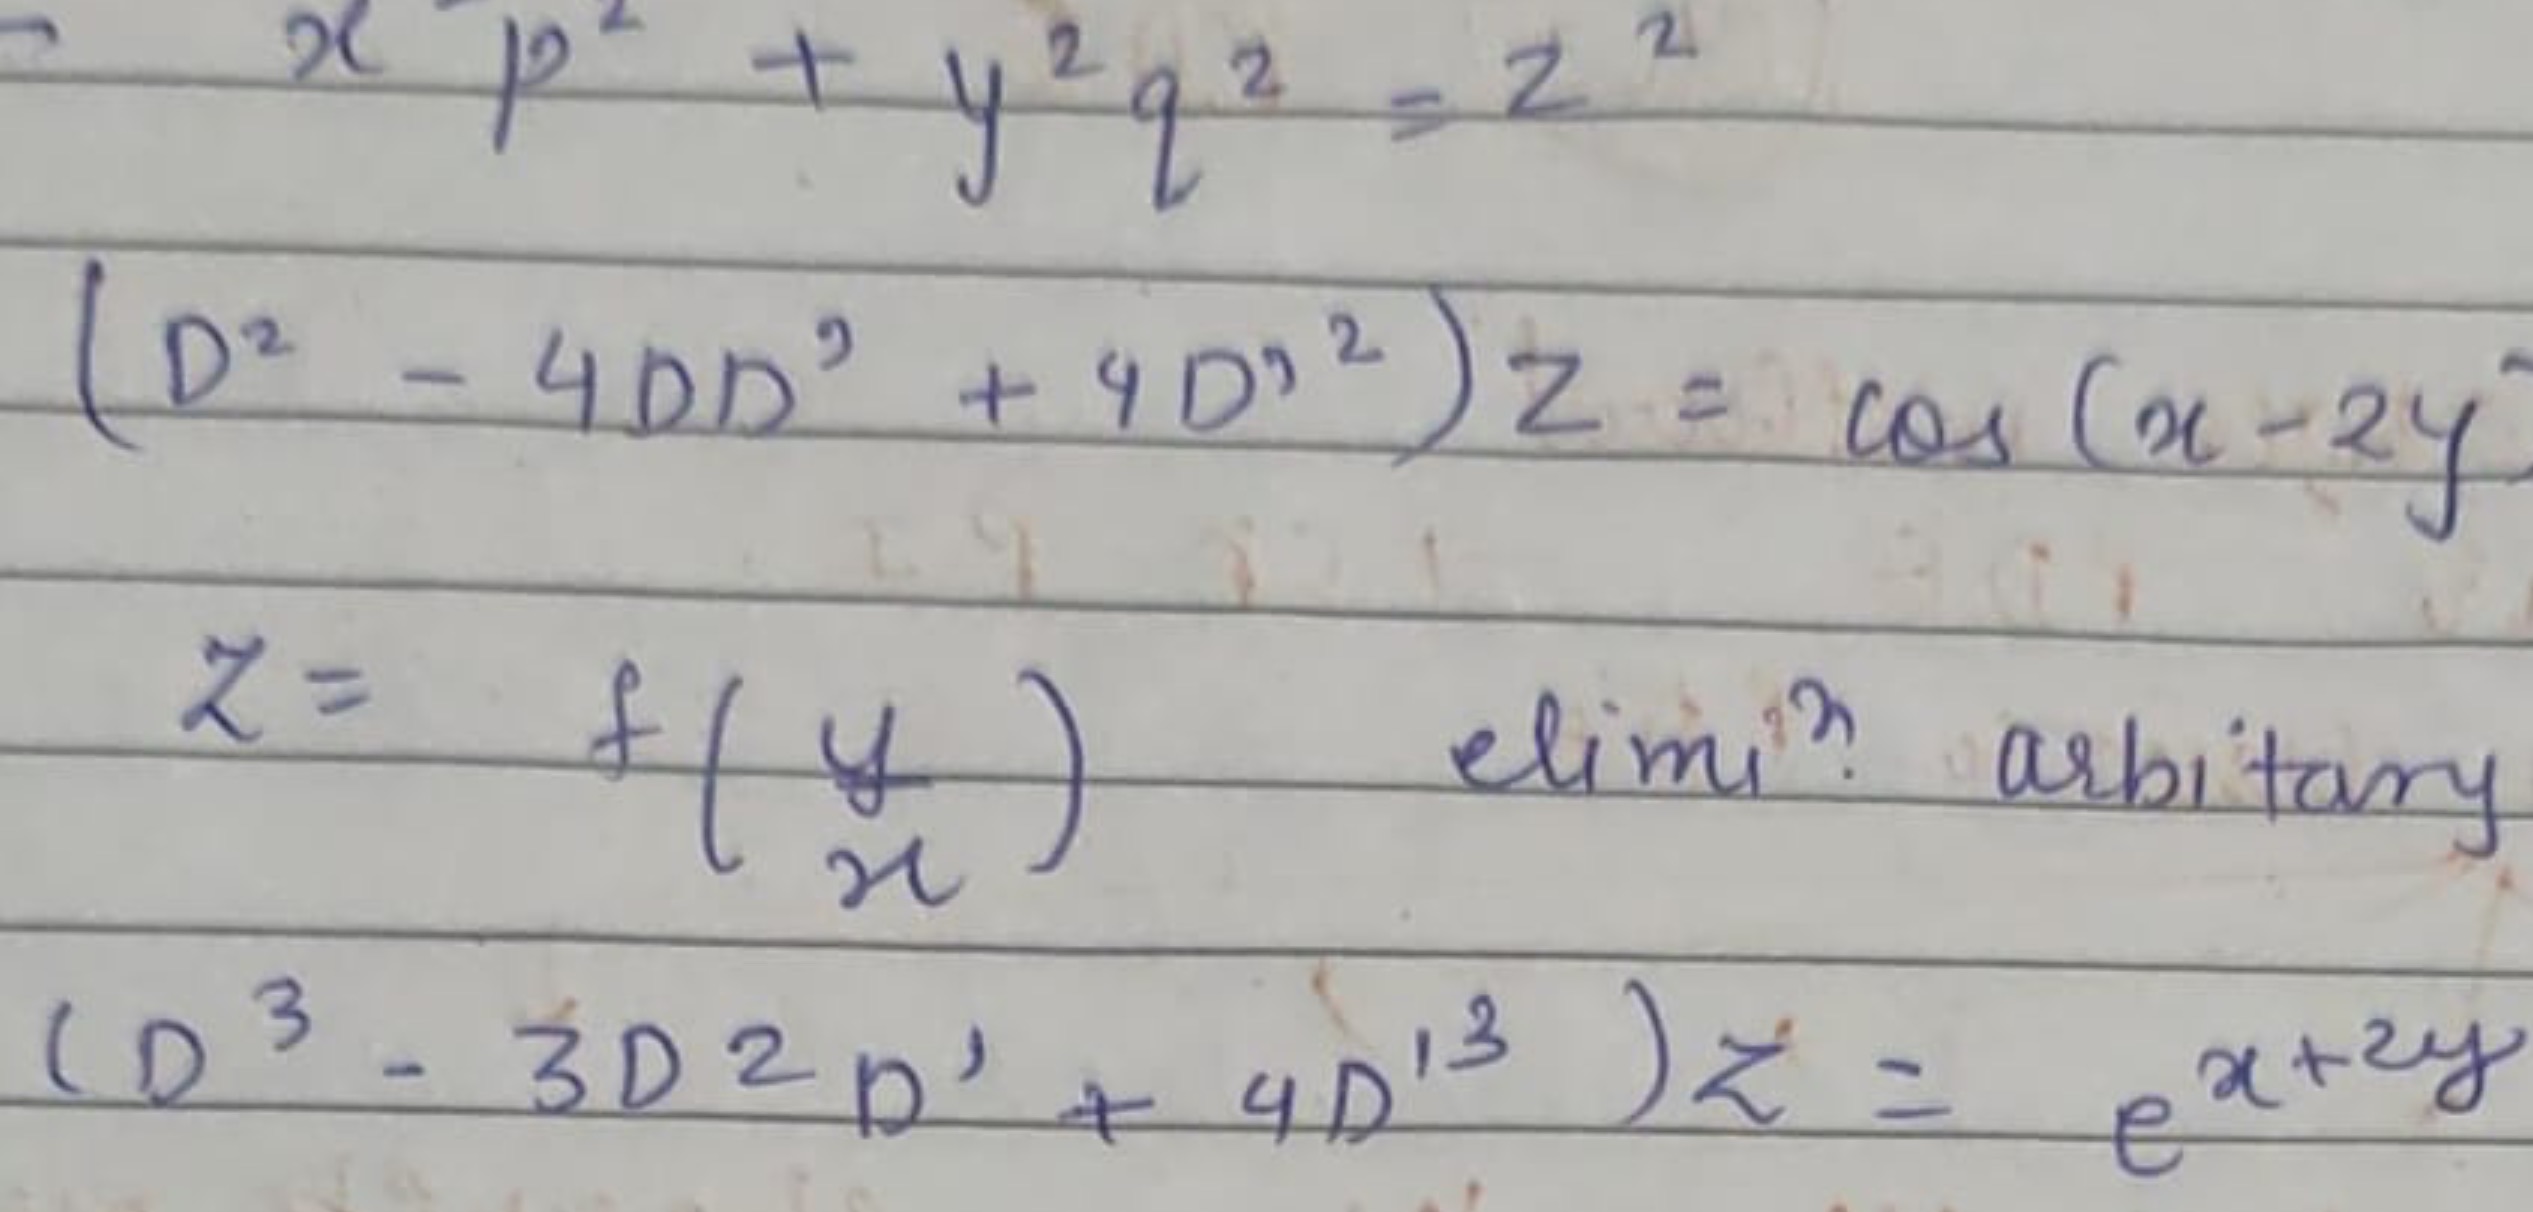 x² p² + y² q² = z²
(D² - 4DD' + 4D'²) z = cos (x - 2y)
z = f(y/x) elimiⁿ. arbitary
(D³ - 3D2D' + 4D'³) z = e^{x+2y}